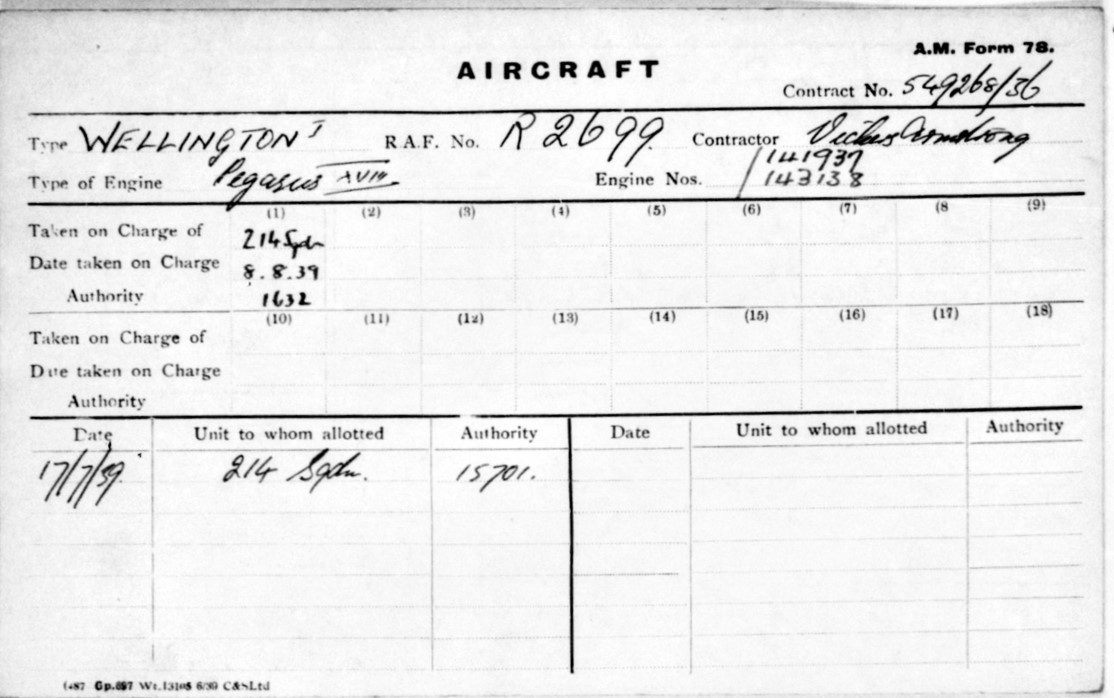 A.M. Form 78.
AIRCRAFT
Contract No. 549268/36
Type WELLINGTON I R.A.F. No. R2699. Contractor Vickers Armstrong
Type of Engine Pegasus XVIII Engine Nos. / 141937
143138
(1) (2) (3) (4) (5) (6) (7) (8 (9)
Taken on Charge of 214 Sqdn
Date taken on Charge 8.8.39
Authority 1632
(10) (11) (12) (13) (14) (15) (16) (17) (18)
Taken on Charge of
Date taken on Charge
Authority
Date Unit to whom allotted Authority Date Unit to whom allotted Authority
17/7/39. 214 Sqdn. 15701.
Gp.697 6/39 C&SLtd